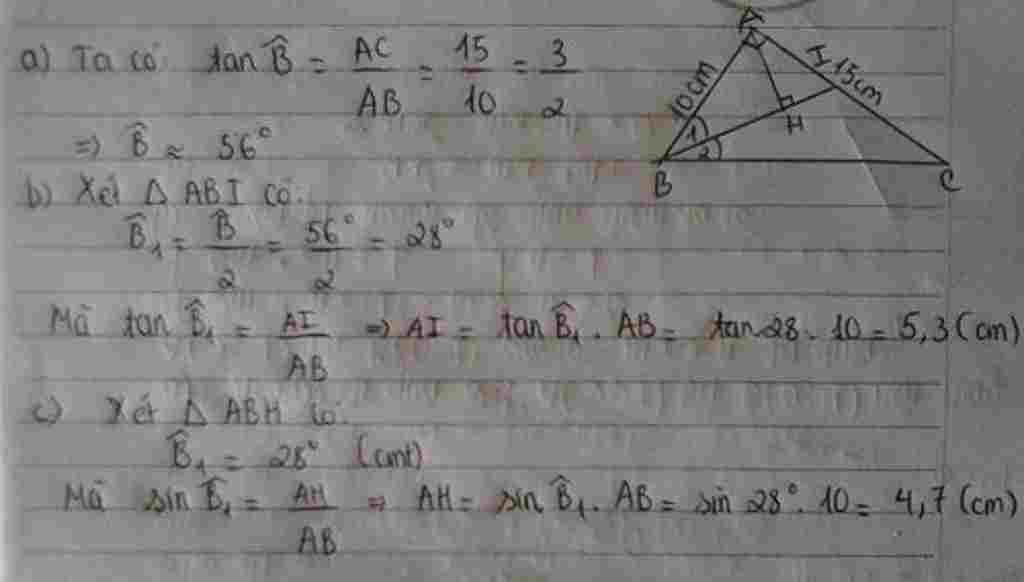 a) Ta có tan B̂ = AC/AB = 15/10 = 3/2
=> B̂ ≈ 56°
b) Xét Δ ABI có:
B̂₁ = B̂/2 = 56°/2 = 28°
Mà tan B̂₁ = AI/AB => AI = tan B̂₁ . AB = tan 28 . 10 = 5,3 (cm)
c) Xét Δ ABH có:
B̂₁ = 28° (cmt)
Mà sin B̂₁ = AH/AB => AH = sin B̂₁ . AB = sin 28° . 10 = 4,7 (cm)
A
I
10cm
15cm
H
1
2
B
C